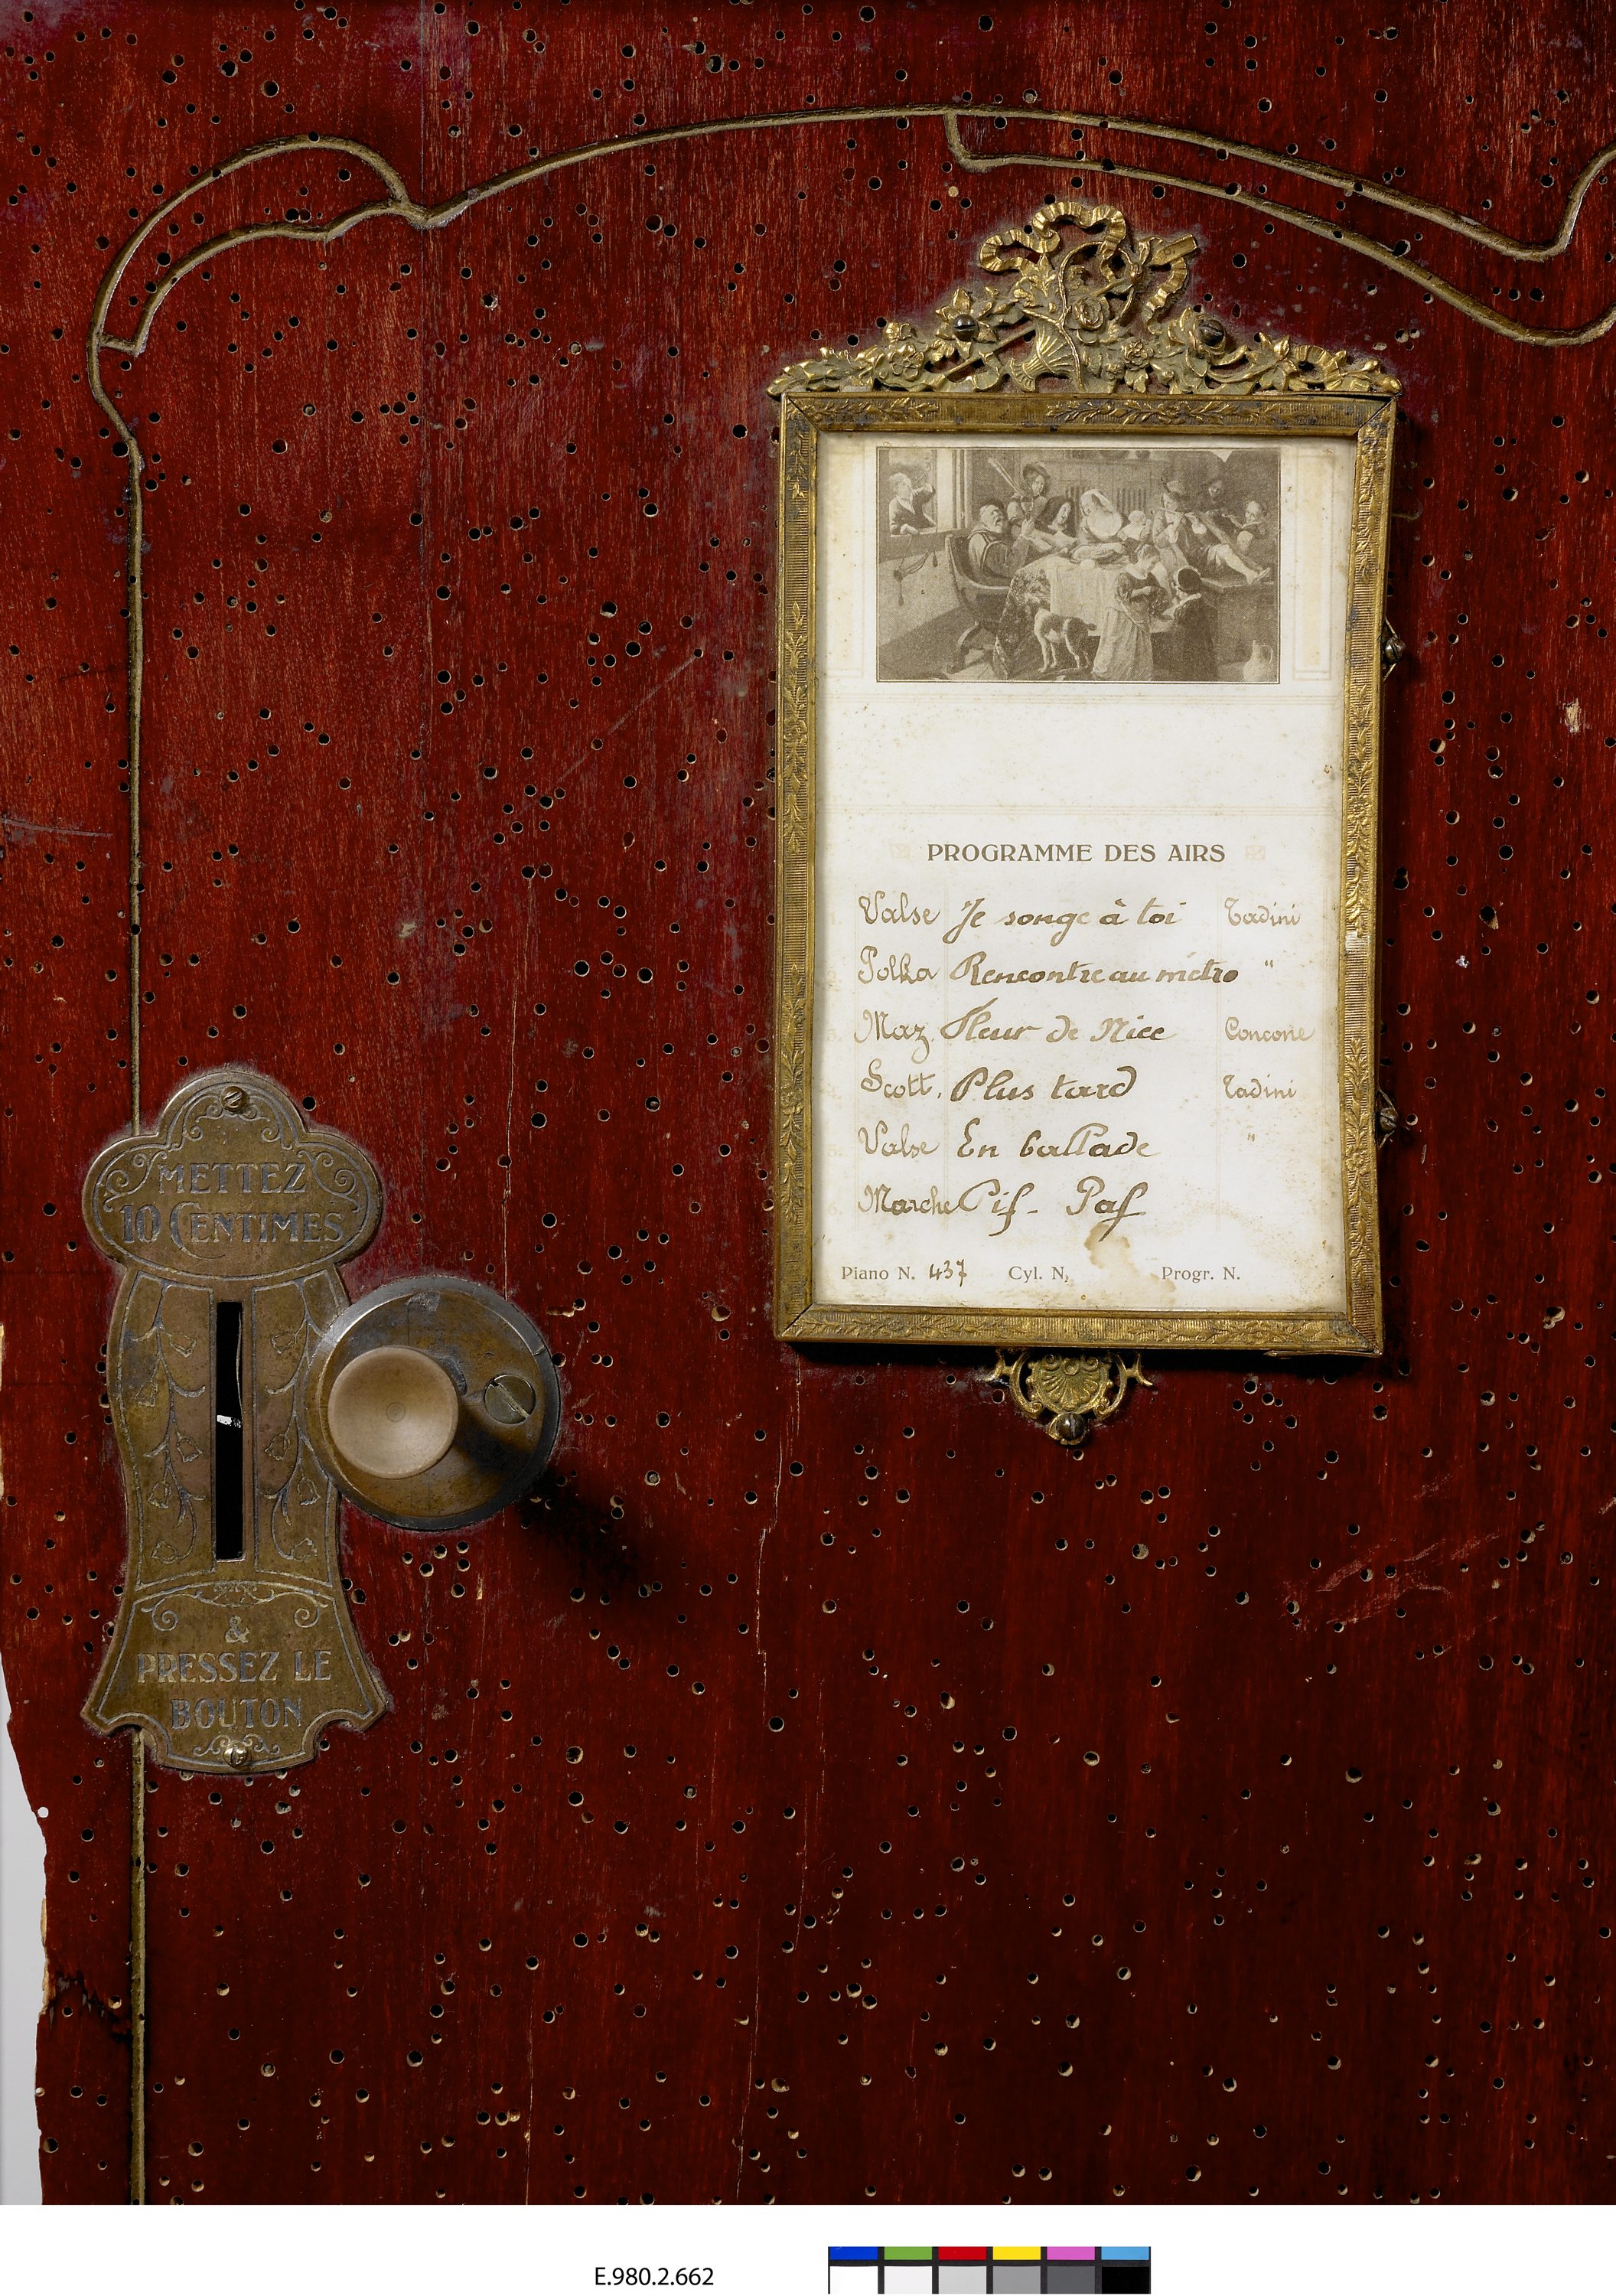 METTEZ
10 CENTIMES
&
PRESSEZ LE
BOUTON
PROGRAMME DES AIRS
Valse Je songe à toi Tadini
Polka Rencontre au métro "
Maz. Fleur de Nice Concone
Scott. Plus tard Tadini
Valse En ballade "
Marche Pif - Paf
Piano N. 437 Cyl. N, Progr. N.
E.980.2.662